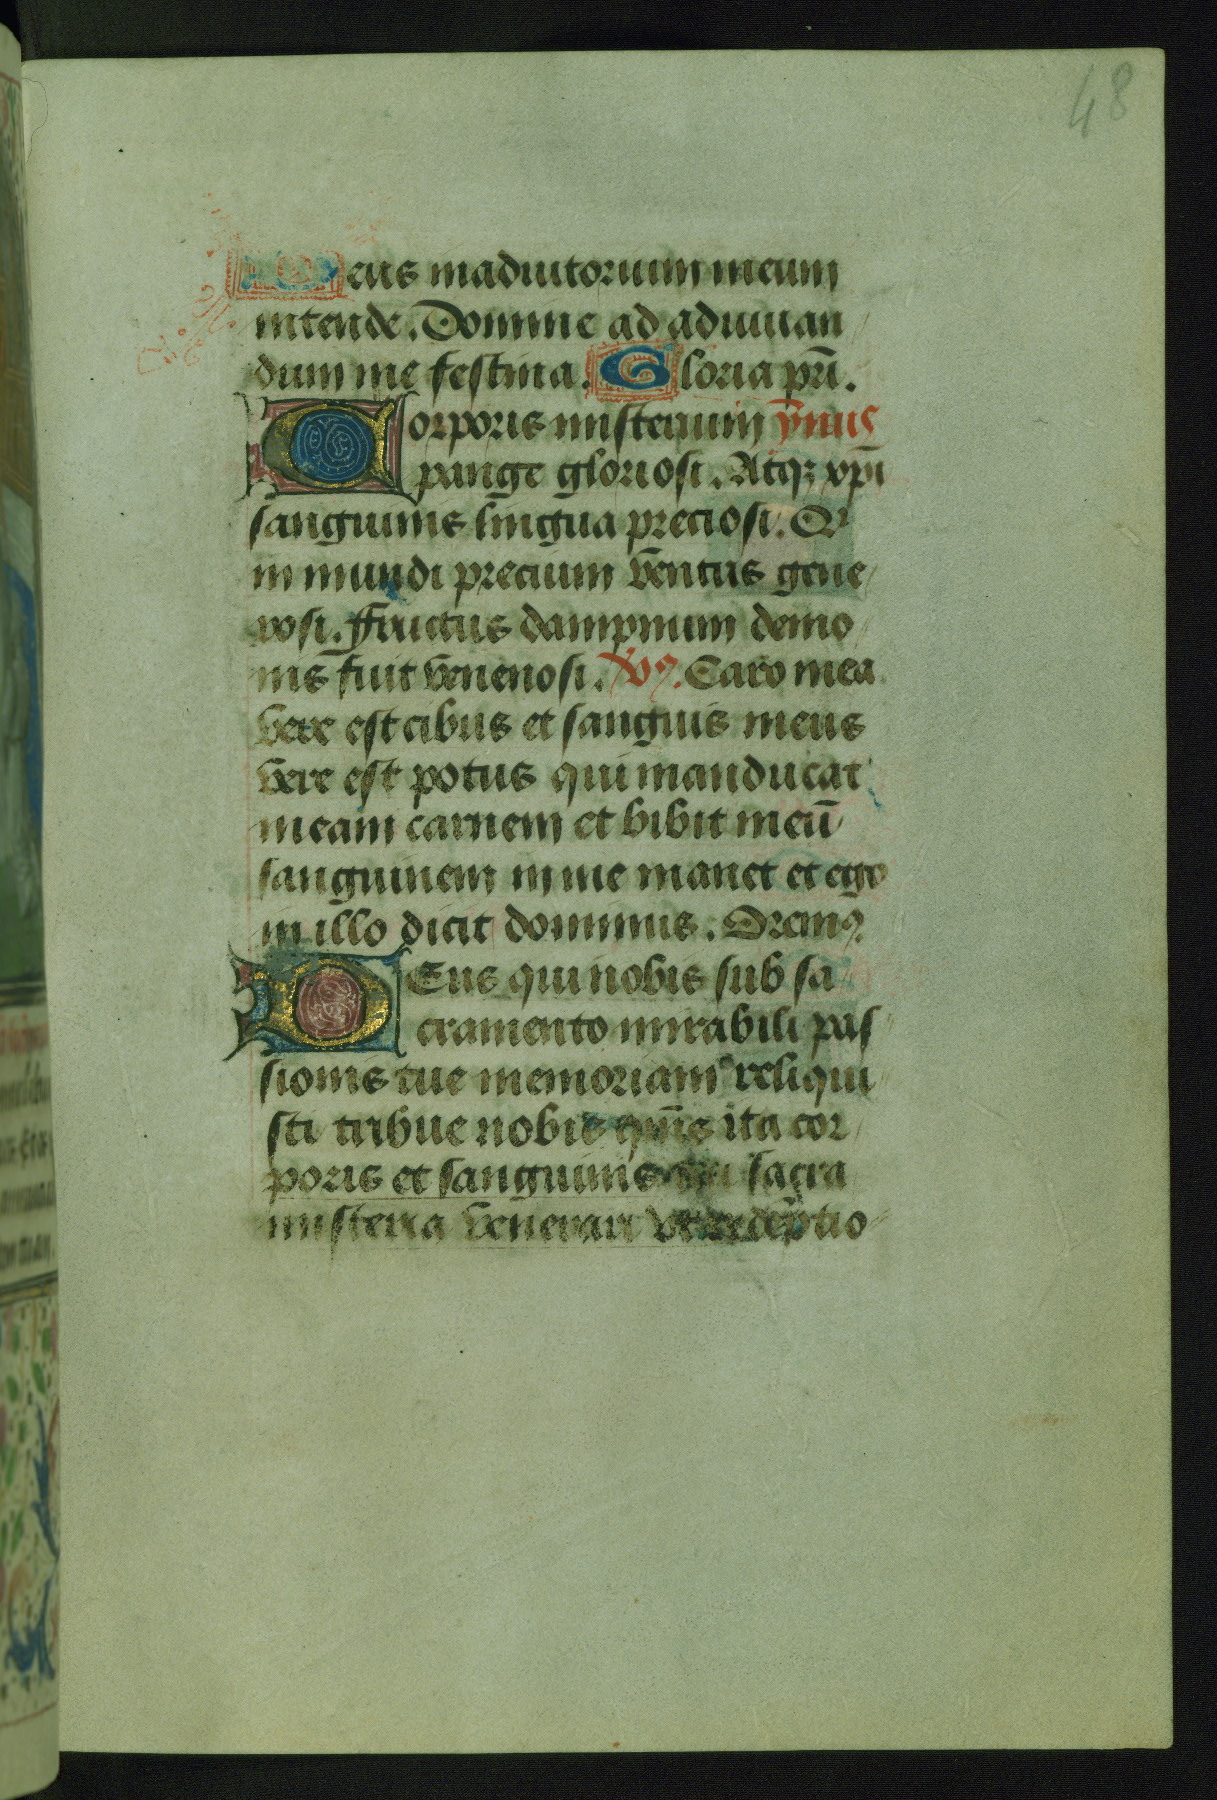 48
Deus in adiutorium meum
intende. Domine ad adiuuan
dum me festina. Gloria pr̄i.
Corporis misterium ȳmus
pange gloriosi. Atqꝫ xp̄i
sanguinis lingua preciosi. Q
in mundi precium ventris gene
rosi. Fructus dampnum demo
nis fuit venenosi. Vꝰ. Caro mea
vere est cibus et sanguis meus
vere est potus qui manducat
meam carnem et bibit meū
sanguinem in me manet et ego
in illo dicit dominus. Oremꝰ
DEus qui nobis sub sa
cramento mirabili pas
sionis tue memoriam reliqui
sti tribue nobis qm̄s ita cor
poris et sanguinis tui sacra
misteria venerari vt redēptio